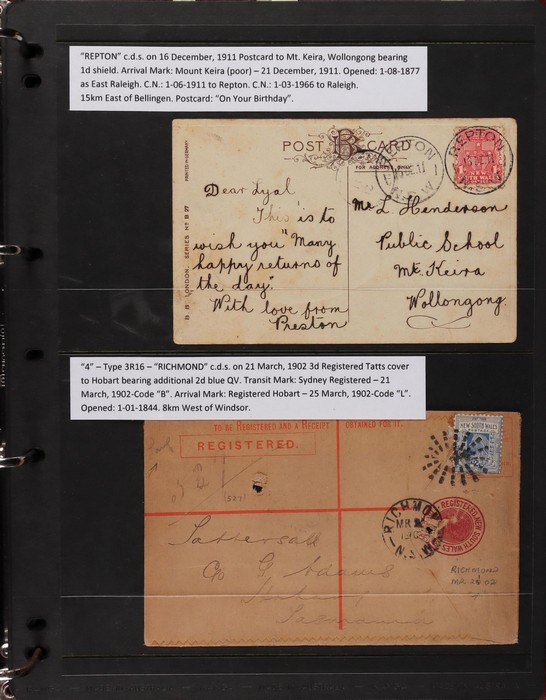 "REPTON" c.d.s. on 16 December, 1911 Postcard to Mt. Keira, Wollongong bearing
1d shield. Arrival Mark: Mount Keira (poor) – 21 December, 1911. Opened: 1-08-1877
as East Raleigh. C.N.: 1-06-1911 to Repton. C.N.: 1-03-1966 to Raleigh.
15km East of Bellingen. Postcard: "On Your Birthday".
POST CARD
FOR ADDRESS ONLY
PRINTED IN GERMANY
B B LONDON. SERIES No B 27
REPTON
16 DE 11
N.S.W
REPTON
16 DE 11
Dear Lyal
This is to
wish you "Many
happy returns of
the day".
With love from
Preston
Mr L Henderson
Public School
Mt. Keira
Wollongong
"4" – Type 3R16 – "RICHMOND" c.d.s. on 21 March, 1902 3d Registered Tatts cover
to Hobart bearing additional 2d blue QV. Transit Mark: Sydney Registered – 21
March, 1902-Code "B". Arrival Mark: Registered Hobart – 25 March, 1902-Code "L".
Opened: 1-01-1844. 8km West of Windsor.
TO BE REGISTERED AND A RECEIPT OBTAINED FOR IT.
REGISTERED.
NEW SOUTH WALES
RICHMOND
MR
N.S.W
REGISTERED NEW SOUTH WALES
Tattersall
C/o G Adams
Tasmania
RICHMOND
MR 21 02